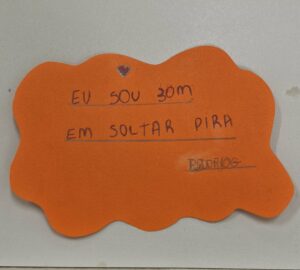 EU SOU 30M
EM SOLTAR PIRA